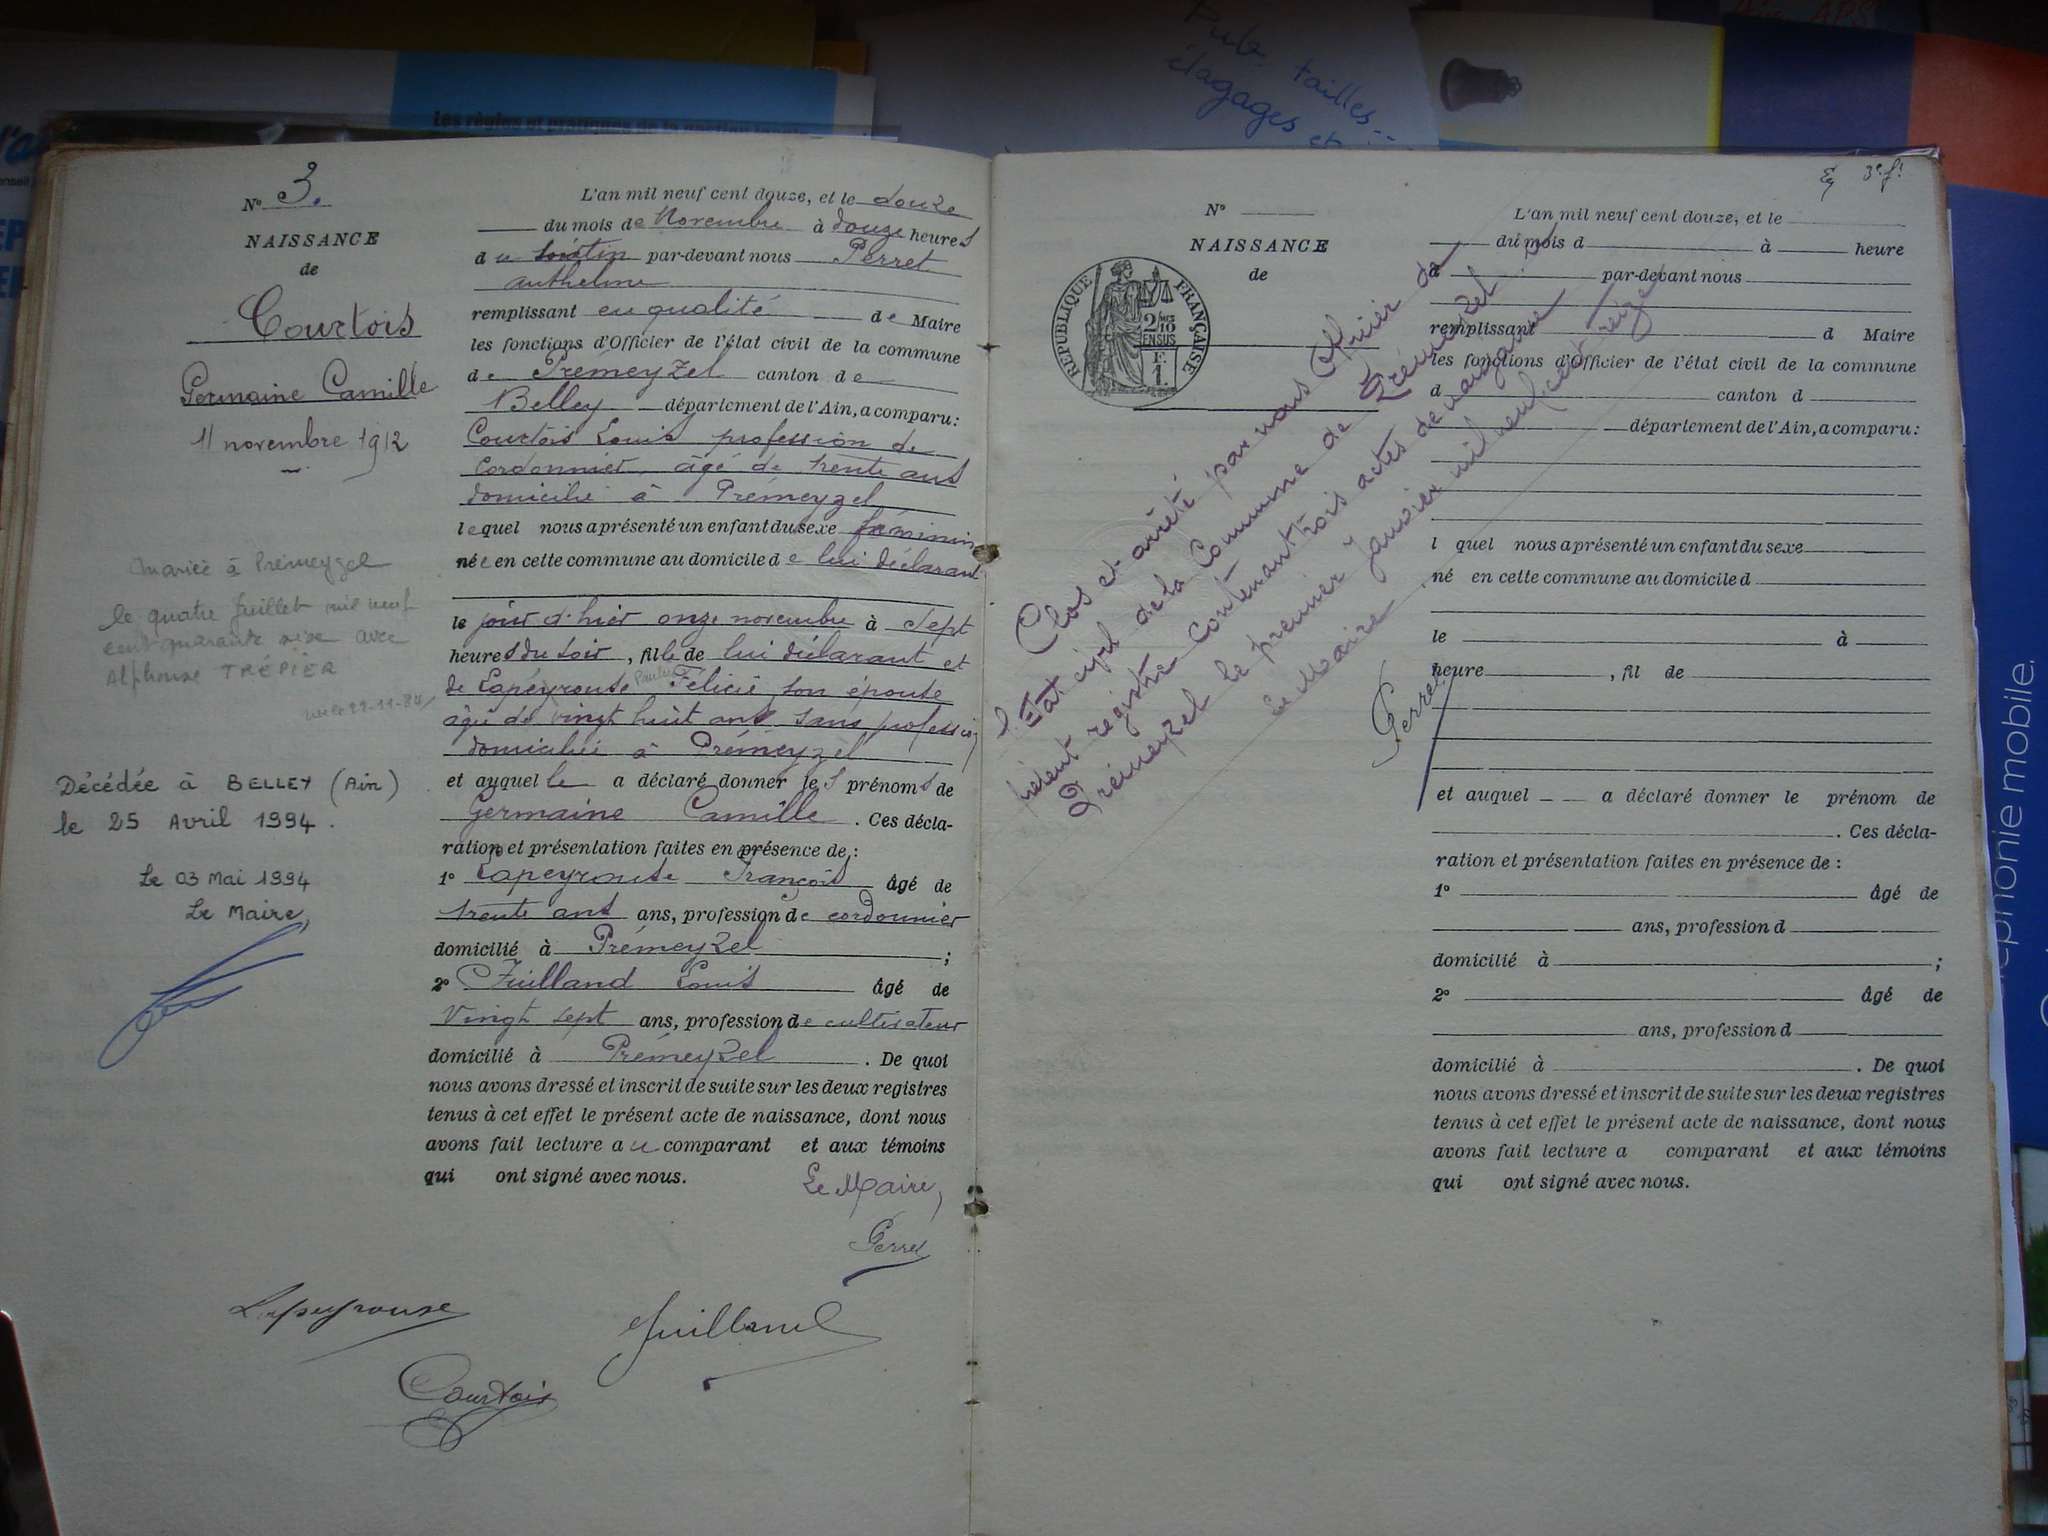 Pub, tailles...
élagages et
Les règles et pratiques de la gestion
N° 3.
NAISSANCE
de
Courtois
Germaine Camille
11 novembre 1912
Mariée à Prémeyzel
le quatre juillet mil neuf
cent quarante six avec
Alphonse TRÉPIER
22-11-84
Décédée à BELLEY (Ain)
le 25 Avril 1994.
Le 03 Mai 1994
Le Maire,
L'an mil neuf cent douze, et le douze
du mois de Novembre à douze heures
du par-devant nous Perret
Anthelme
remplissant en qualité de Maire
les fonctions d'Officier de l'état civil de la commune
de Prémeyzel canton de
Belley département de l'Ain, a comparu:
Courtois Louis profession de
cordonnier âgé de trente ans
domicilié à Prémeyzel
lequel nous a présenté un enfant du sexe féminin
née en cette commune au domicile de lui déclarant
le jour d'hier onze novembre à sept
heures du soir, fille de lui déclarant et
de Lapeyrouse Félicie son épouse
âgée de vingt huit ans sans profession
domiciliée à Prémeyzel
et auquel le a déclaré donner les prénoms de
Germaine Camille. Ces décla-
ration et présentation faites en présence de:
1° Lapeyrouse François âgé de
trente ans ans, profession de cordonnier
domicilié à Prémeyzel;
2° Juilland Louis âgé de
Vingt sept ans, profession de cultivateur
domicilié à Prémeyzel. De quoi
nous avons dressé et inscrit de suite sur les deux registres
tenus à cet effet le présent acte de naissance, dont nous
avons fait lecture au comparant et aux témoins
qui ont signé avec nous.
Le Maire,
Perret
Lapeyrouse
Juilland
Courtois
3e f!
N°
NAISSANCE
de
RÉPUBLIQUE FRANÇAISE
2/10 EN SUS
F. 1.
L'an mil neuf cent douze, et le
du mois d à heure
d par-devant nous
remplissant d Maire
les fonctions d'Officier de l'état civil de la commune
d canton d
département de l'Ain, a comparu:
l quel nous a présenté un enfant du sexe
né en cette commune au domicile d
le à
heure , fil de
et auquel a déclaré donner le prénom de
. Ces décla-
ration et présentation faites en présence de:
1° âgé de
ans, profession d
domicilié à ;
2° âgé de
ans, profession d
domicilié à . De quoi
nous avons dressé et inscrit de suite sur les deux registres
tenus à cet effet le présent acte de naissance, dont nous
avons fait lecture a comparant et aux témoins
qui ont signé avec nous.
Clos et arrêté par nous Officier de
l'État civil de la Commune de Prémeyzel le
présent registre contenant trois actes de naissance
Prémeyzel le premier Janvier mil neuf cent treize
Le Maire
Perret
téléphonie mobile.